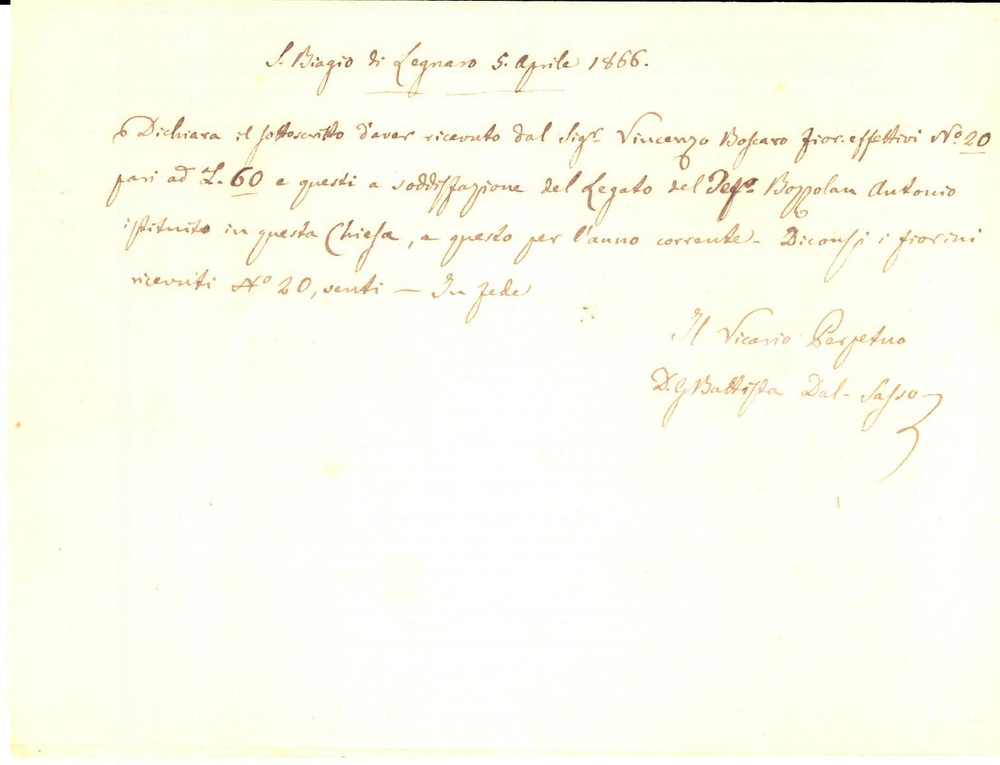 S. Biagio di Legnaro 5. Aprile 1866.
Dichiara il sottoscritto d'aver ricevuto dal Sigr. Vincenzo Boscaro fior. effettivi No. 20
pari ad L. 60 e questi a soddisfazione del Legato del Antonio
istituito in questa Chiesa, e questo per l'anno corrente - Diconsi i fiorini
ricevuti No 20, venti — In fede
Il Vicario Perpetuo
D. G Battista Dal-Sasso